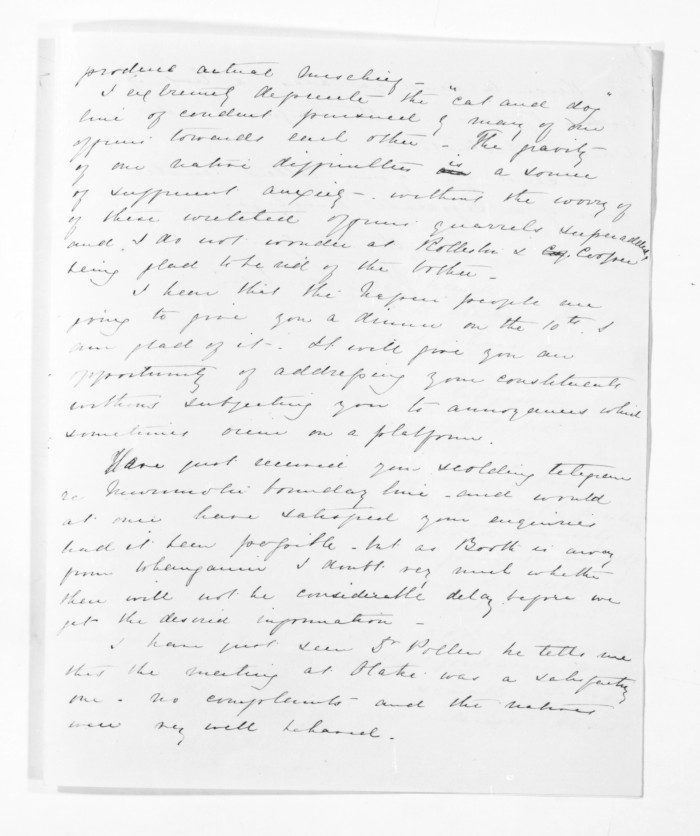 produce actual mischief -
I extremely deprecate the "cat and dog"
line of conduct pursued by many of our
officers towards each other - The gravity
of our native difficulties is a source
of sufficient anxiety - without the worry of
of these wretched officers quarrels superadded,
and I do not wonder at Rolleston & Cooper
being glad to be rid of the bother -
I hear that the Napier people are
going to give you a dinner on the 10th. I
am glad of it - It will give you an
opportunity of addressing your constituents
without subjecting you to annoyances which
sometimes occur on a platform.
Have just received your scolding telegram
re Murimotu boundary line - and would
at once have satisfied your enquiries
had it been possible - but as Booth is away
from Whanganui I doubt very much whether
there will not be considerable delay before we
get the desired information -
I have just seen Dr Pollen he tells me
that the meeting at Otaki was a satisfactory
one - no complaints and the natives
were very well behaved -